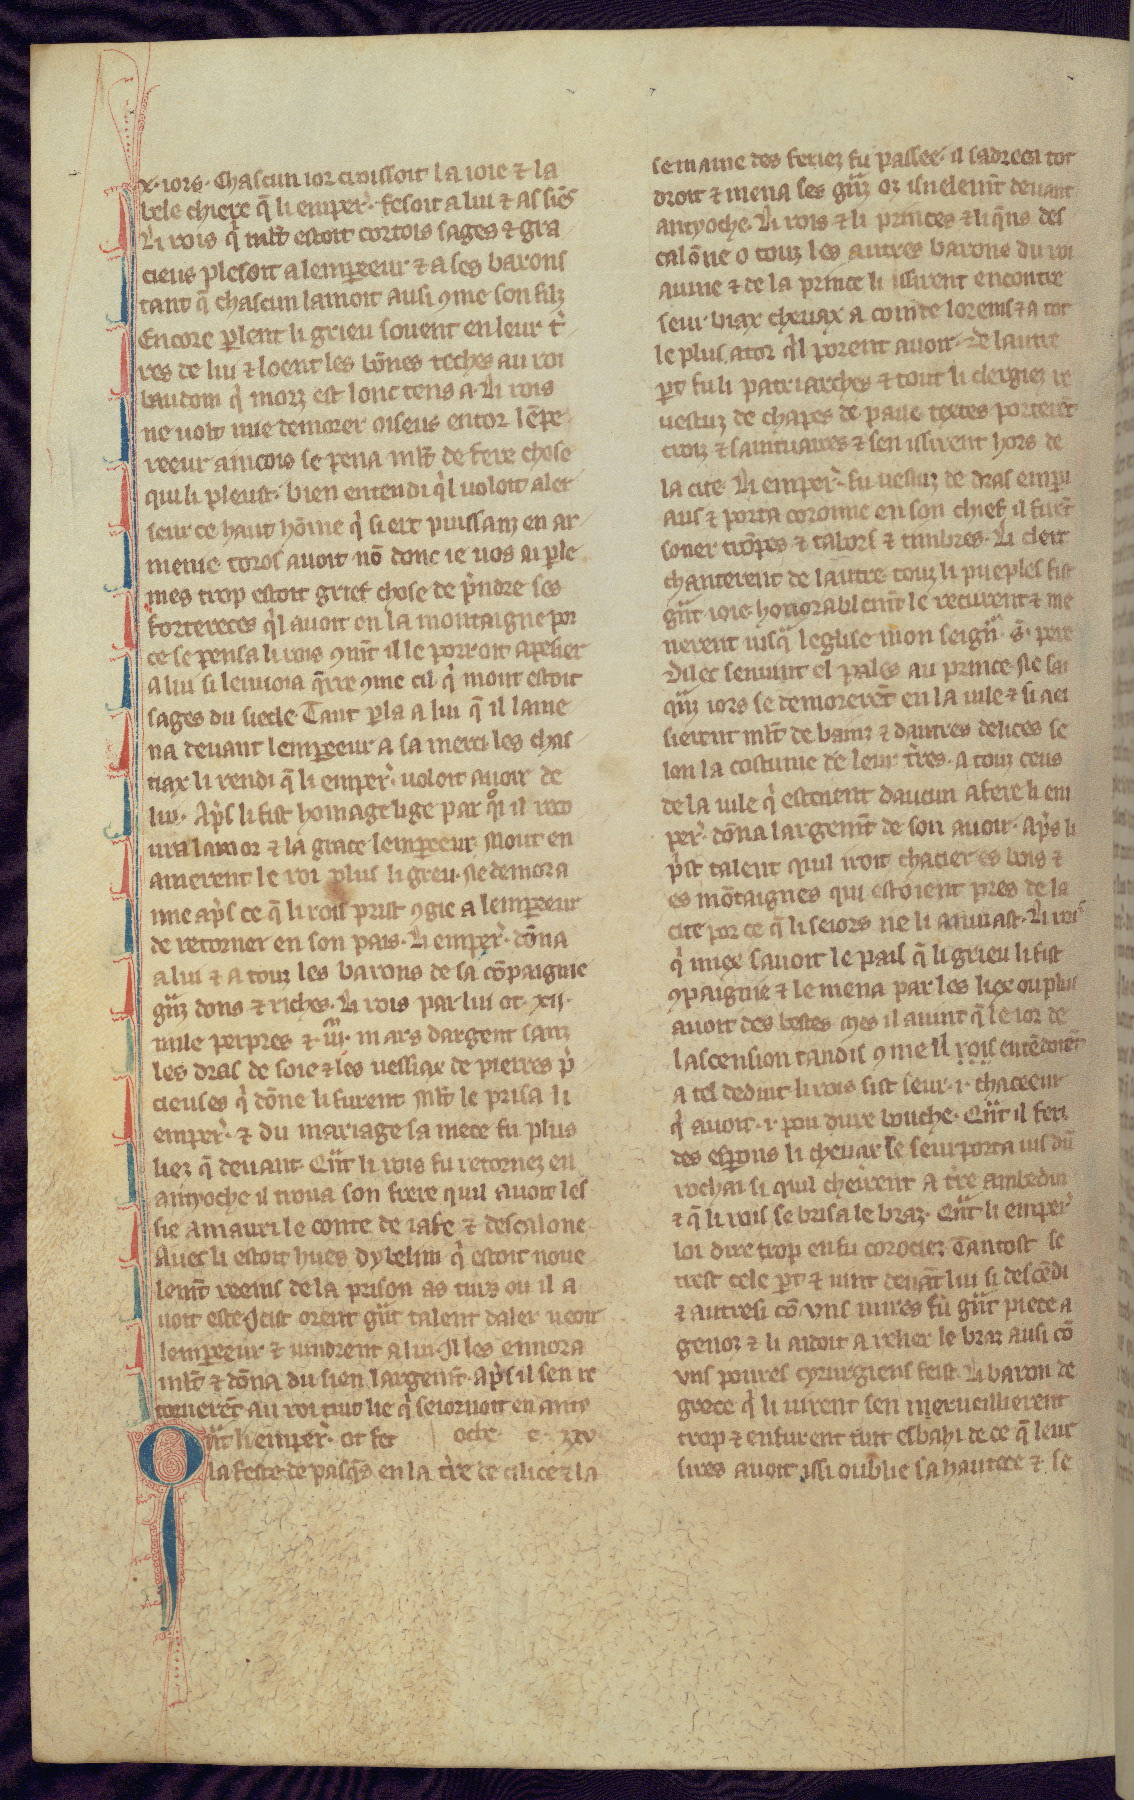 x. iors. Chascun ior croissoit la ioie ⁊ la
bele chiere q̄ li emper̉. fesoit a lui ⁊ as siēs
Li rois q̉ mlt̄ estoit cortois sages ⁊ gra
cieus plesoit a lempereeur ⁊ a ses barons
tant q̄ chascun lamoit ausi ꝯme son filz
Encore ꝑlent li grieu souent en leur t̉
res de lui ⁊ loent les bōnes teches au roi
baudoin q̉ morz est lonc tens a. Li rois
ne uolt mie demorer oiseus entor lēpe
reeur aincois se pena mlt̄ de fere chose
qui li pleust. bien entendi q̉l uoloit aler
seur ce haut hōme q̉ si ert puissanz en ar
menie toros auoit nō donc ie uos ai ꝑle
mes trop estoit grief chose de p̉ndre ses
forteresces q̉l auoit en la montaigne por
ce se pensa li rois ꝯmt̄ il le porroit apesier
a lui si lenuoia q̄rre ꝯme cil q̉ mout estoit
sages du siecle. Tant ꝑla a lui q̄ il lame
na deuant lempereeur a sa merci. les chas
tiax li rendi q̄ li emper̉. uoloit auoir de
lui. Ap̉s li fist homage lige par qͦi il reco
ura lamor ⁊ la grace lempereeur. Mout en
amerent le roi plus li greu. Ne demora
mie ap̉s ce q̄ li rois prist ꝯgie a lempereeur
de retorner en son pais. Li emper̉. dōna
a lui ⁊ a touz les barons de sa cōpaignie
gͣnz dons ⁊ riches. Li rois par lui ot .xii.
mile perpres ⁊ .iiiͫ. mars dargent sanz
les dras de soie ⁊ les uessiax de pierres p̉
cieuses q̉ dōne li furent. Mlt̄ le prisa li
emper̉. ⁊ du mariage sa niece fu plus
liez q̄ deuant. Qͣnt li rois fu retornez en
antyoche il troua son frere quil auoit les
sie amauri le conte de iafe ⁊ descalone.
Auec li estoit hues dybelin q̉ estoit noue
lemt̄ reeins de la prison as turs ou il a
uoit este. Icist orent gͣnt talent daler ueoir
lempereeur ⁊ uindrent a lui. Il les ennora
mlt̄ ⁊ dōna du sien largemt̄. Ap̉s il sen re
tornerēt au roi tuit lie q̉ seiornoit en anty
Qͣnt li emper̉. ot fet oche. c. xxv
la feste de pasq̄s en la t̉re de cilice ⁊ la
semaine des feriez fu passee. il sadreca tot
droit ⁊ mena ses gͣnz oz isnelemt̄ deuant
antyoche. Li rois ⁊ li princes ⁊ li q̄ns des
calōne o touz les autres barons du roi
aume ⁊ de la prince li issirent encontre
seur biax cheuax a cointe lorems ⁊ a tot
le plus ator q̉l porent auoir. De lautre
ꝑt fu li patriarches ⁊ tout li clergiez re
uestuz de chapes de paile textes porterēt
croiz ⁊ saintuaires ⁊ sen issirent hors de
la cite. Li emper̉. fu uestuz de dras emperi
aus ⁊ porta coronne en son chief. il furēt
soner trōpes ⁊ tabors ⁊ timbres. Li clerc
chanterent de lautre touz li pueples fist
gͣnt ioie. honorablemt̄ le recurent ⁊ me
nerent iusq̄ leglise mon seign̄. s̄. pere
Dilec senuint el pales au prince. Ne sai
qͣnz iors se demorerēt en la uile ⁊ si aei
sierent mlt̄ de bainz ⁊ dautres delices se
lon la costume de leur t̉res. A touz ceus
de la uile q̉ estoient daucun afere li em
per̉. dōna largemt̄ de son auoir. Ap̉s li
p̉st talent quil iroit chacier es bois ⁊
es mōtaignes qui estoient pres de la
cite por ce q̄ li seiors ne li anuiast. Li rois
q̉ miex sauoit le pais q̄ li grieu li fist
ꝯpaignie ⁊ le mena par les liex ou plus
auoit des bestes. Mes il auint q̄ le ior de
lascension tandis ꝯme il rois entēdoiēt
a tel deduit li rois sist seur .i. chaceeur
q̉ auoit .i. pou dure bouche. Qͣnt il feri
des esperons li cheuax le seurporta ius dū
rochai si quil cheirent a t̉re ambedui
⁊ q̄ li rois se brisa le braz. Qͣnt li emper̉
loi dire trop en fu corociez. Tantost se
trest cele ꝑt ⁊ uint deuāt lui si descēdi
⁊ autresi cō uns mires fu gͣnt piece a
genoz ⁊ li aidoit a relier le braz ausi cō
uns poures cyrurgiens feist. Li baron de
grece q̉ li uirent sen merueillierent
trop ⁊ en furent tuit esbahi de ce q̄ leur
sires auoit issi oublie sa hautece ⁊ se